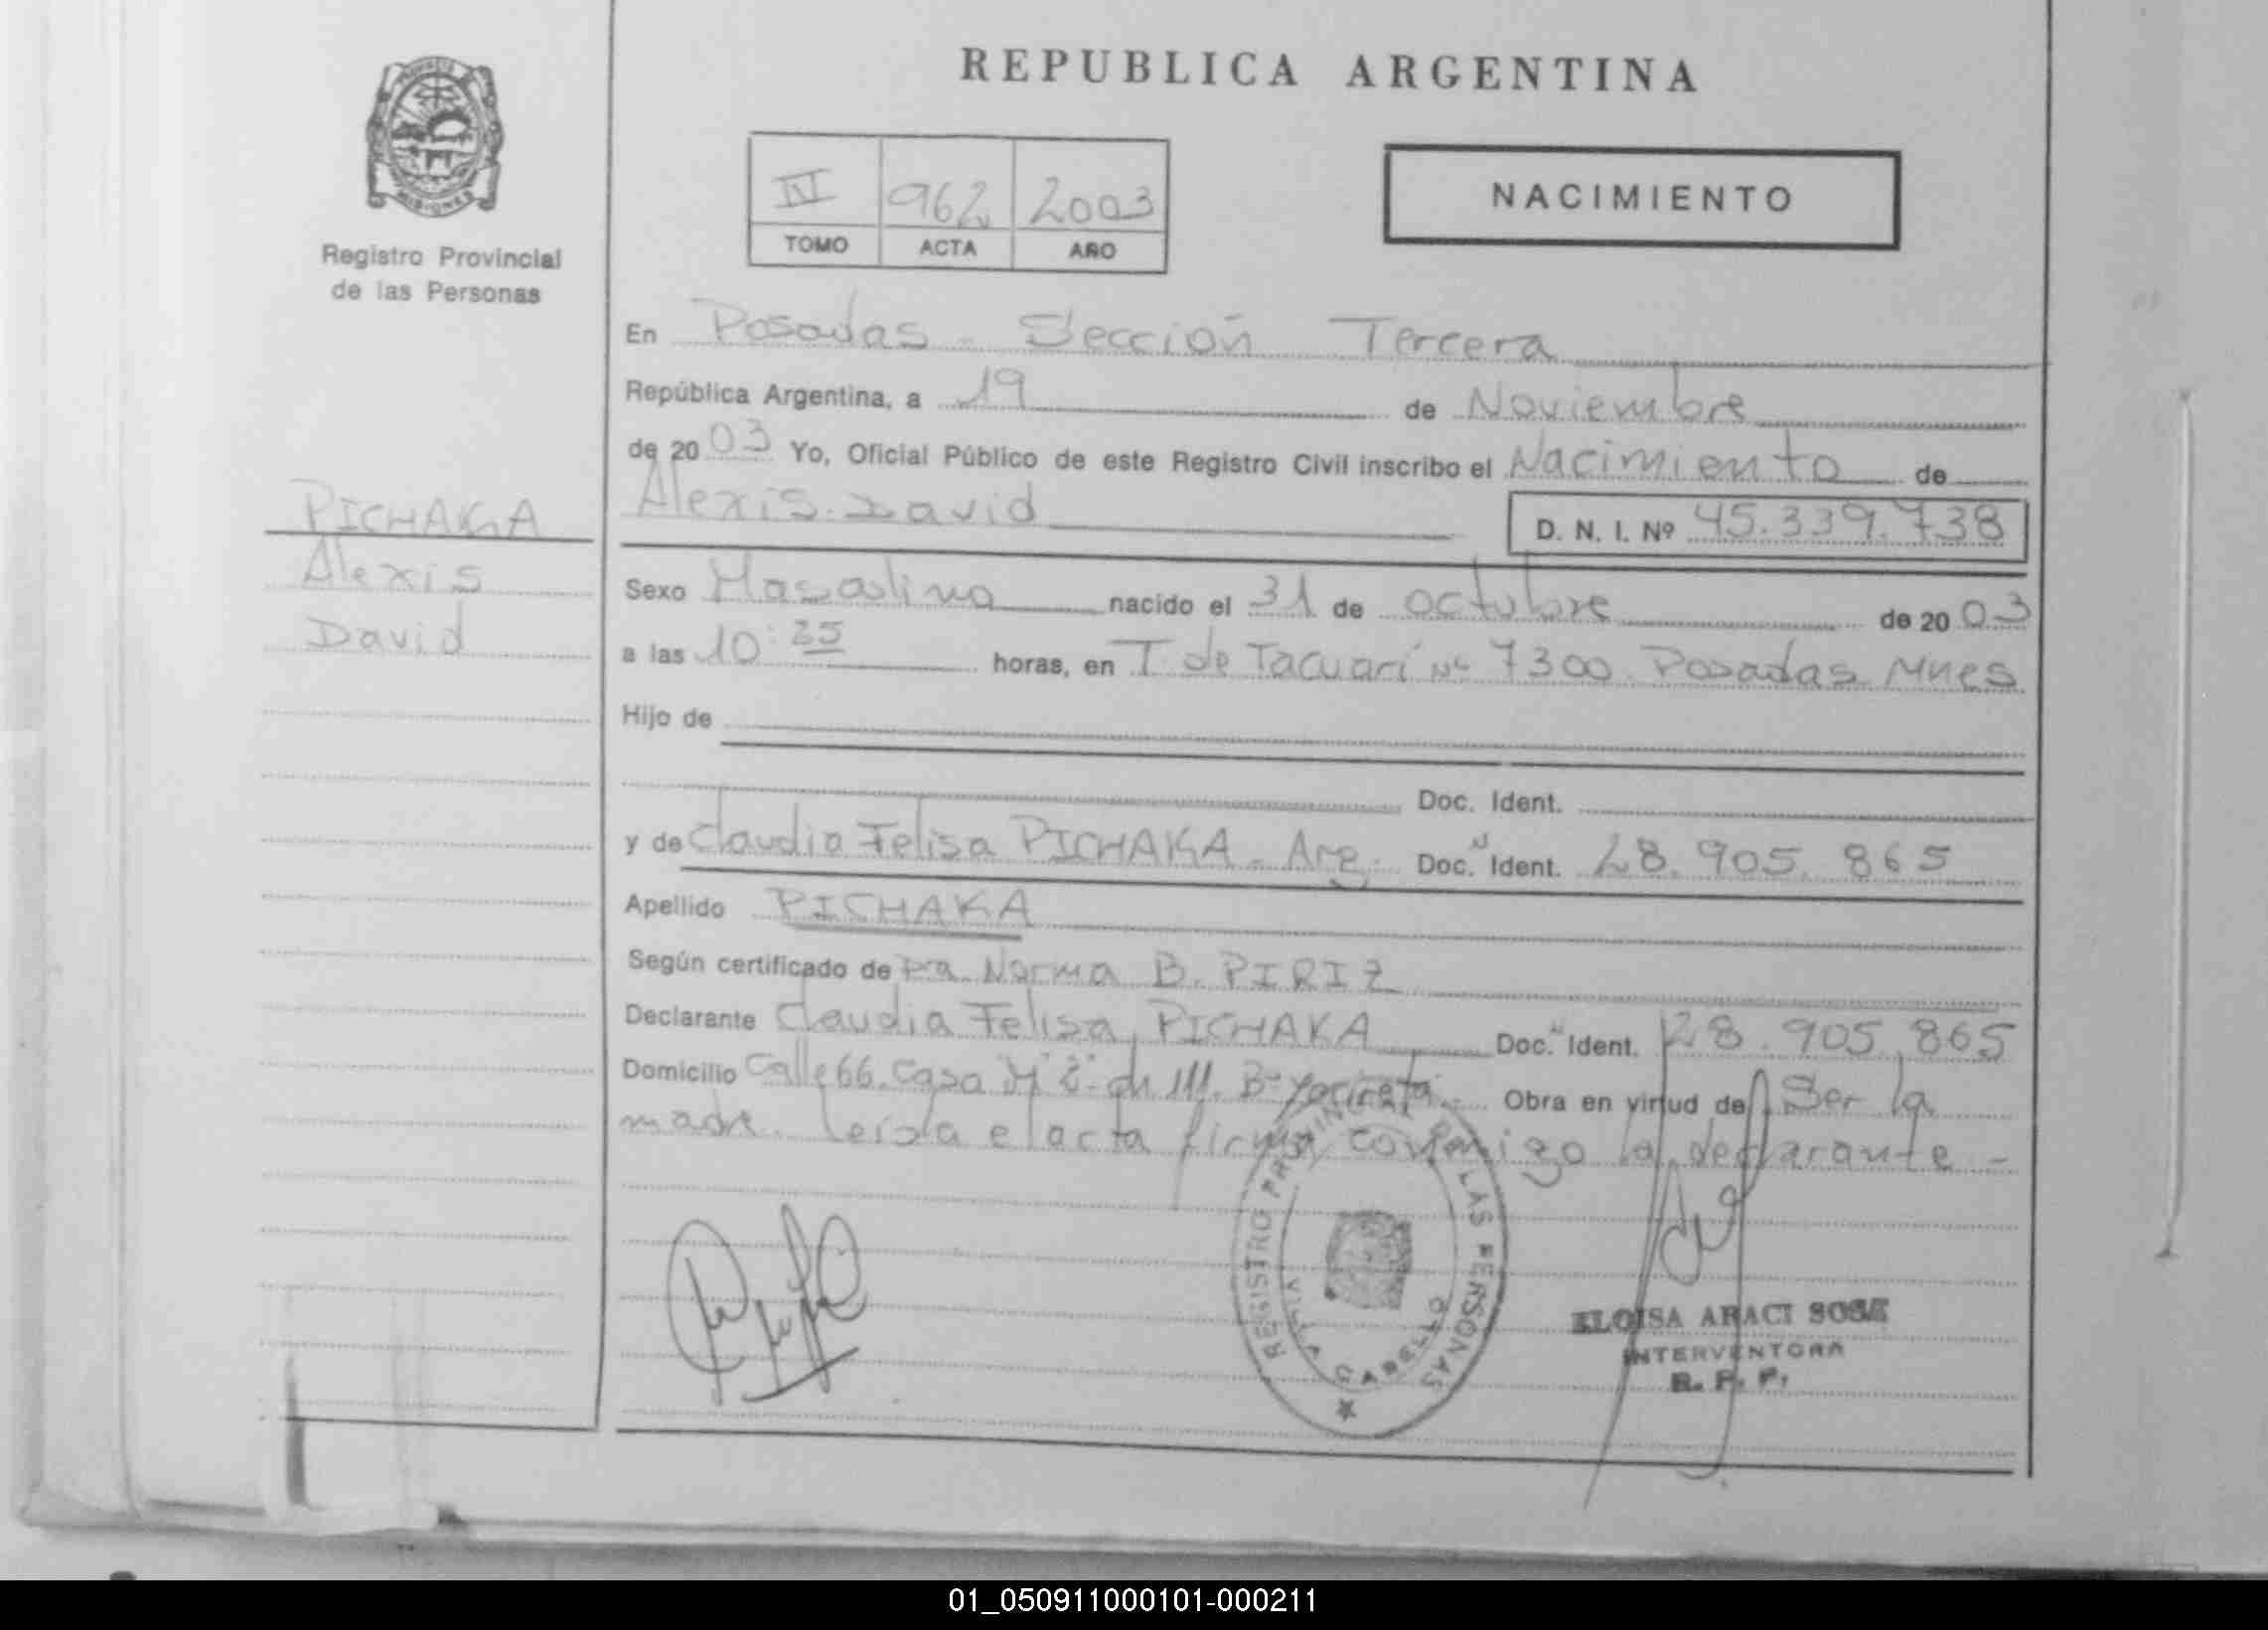 REPUBLICA ARGENTINA
PROVINCIA DE
MISIONES
Registro Provincial
de las Personas
IV 962 2003
TOMO ACTA AÑO
NACIMIENTO
En Posadas - Sección Tercera
República Argentina, a 19 de Noviembre
de 2003 Yo, Oficial Público de este Registro Civil inscribo el Nacimiento de
Alexis David D. N. I. Nº 45.339.738
PICHAKA
Alexis
David
Sexo Masculino nacido el 31 de octubre de 2003
a las 10:25 horas, en T. de Tacuarí Nº 7300 Posadas Mnes
Hijo de
Doc. Ident.
y de Claudia Felisa PICHAKA - Arg. Doc. Ident. 28.905.865
Apellido PICHAKA
Según certificado de Dra Norma B. PIRIZ
Declarante Claudia Felisa PICHAKA Doc. Ident. 28.905.865
Domicilio Calle 66. Casa Bº Yacireta Obra en virtud de Ser la
madre. Leída el acta firma conmigo la declarante -
REGISTRO PROVINCIAL DE LAS PERSONAS
ELOISA ARACI SOSA
INTERVENTORA
R. P. P.
01_050911000101-000211